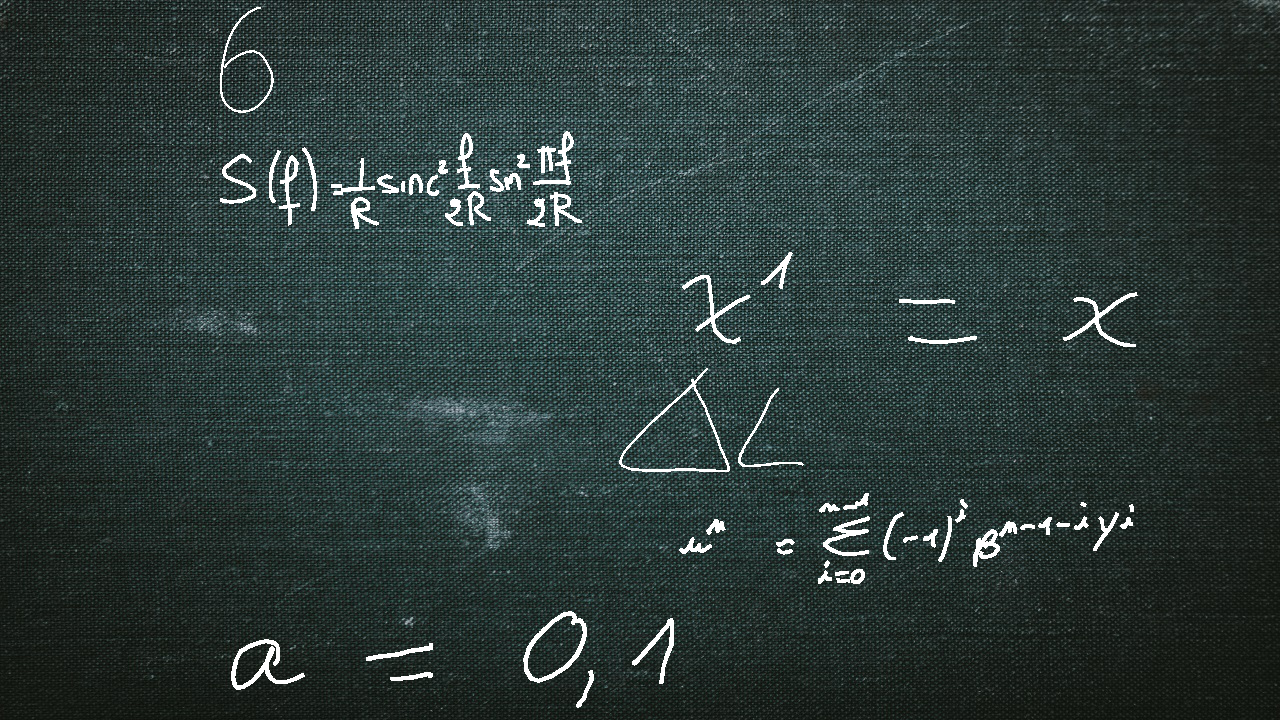 6
S(f) = \frac{1}{R} sinc^2 \frac{f}{2R} sin^2 \frac{πf}{2R}
x^1 = x
ΔL
u^n = \sum_{i=0}^{n-1} (-1)^i β^{n-1-i} y^i
a = 0,1